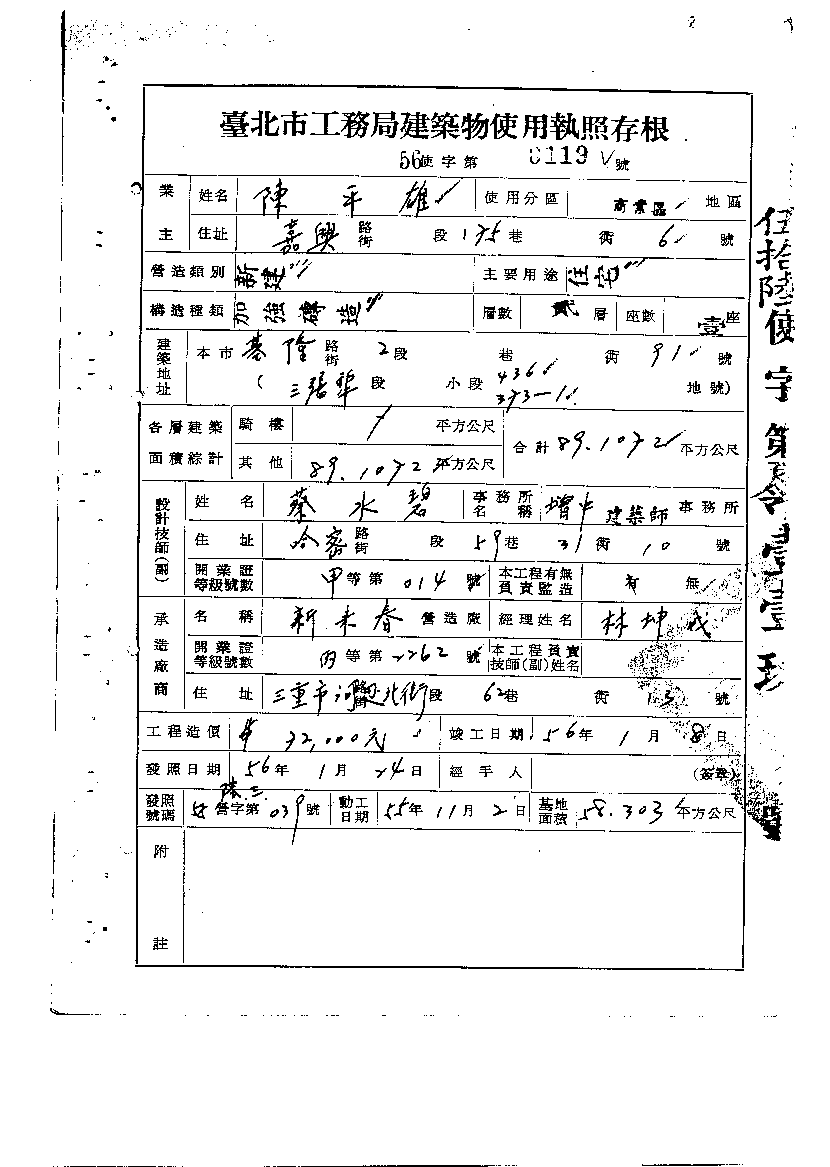 臺北市工務局建築物使用執照存根
56使字第 0119 號
業主 姓名 陳平雄 使用分區 商業區 地區
住址 嘉興 路街 段 175巷 衖 6 號
營造類別 新建 主要用途 住宅
構造種類 加強磚造 層數 貳 層 座數 壹座
建築地址 本市 基隆 路街 2段 巷 衖 91 號
(三張犂 段 小段 436 373-1 地號)
各層建築面積綜計 騎樓 / 平方公尺 合計 89.1072 平方公尺
其他 89.1072 平方公尺
設計技師(副) 姓名 蔡水碧 事務所名稱 增中建築師 事務所
住址 哈密 路街 段 59巷 31衖 10 號
開業證等級號數 甲等第 014 號 本工程有無負責監造 有 無
承造廠商 名稱 新未春 營造廠 經理姓名 林坤成
開業證等級號數 丙等第 2262 號 本工程負責技師(副)姓名
住址 三重市河邊北街 段 62巷 衖 13 號
工程造價 72,000元 竣工日期 56年 1月 8日
發照日期 56年 1月 24日 經手人 (簽章)
發照號碼 55 營字第 039 號 動工日期 55年 11月 2日 基地面積 58.303 平方公尺
附註
伍拾陸使字第零壹壹玖